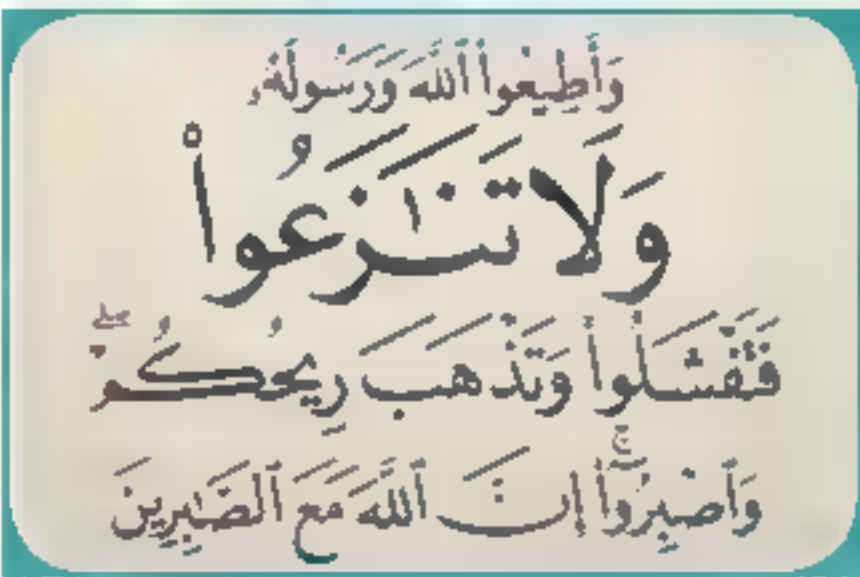 وَأَطِيعُوا۟ ٱللَّهَ وَرَسُولَهُۥ
وَلَا تَنَـٰزَعُوا۟
فَتَفْشَلُوا۟ وَتَذْهَبَ رِيحُكُمْ ۖ
وَٱصْبِرُوٓا۟ ۚ إِنَّ ٱللَّهَ مَعَ ٱلصَّـٰبِرِينَ